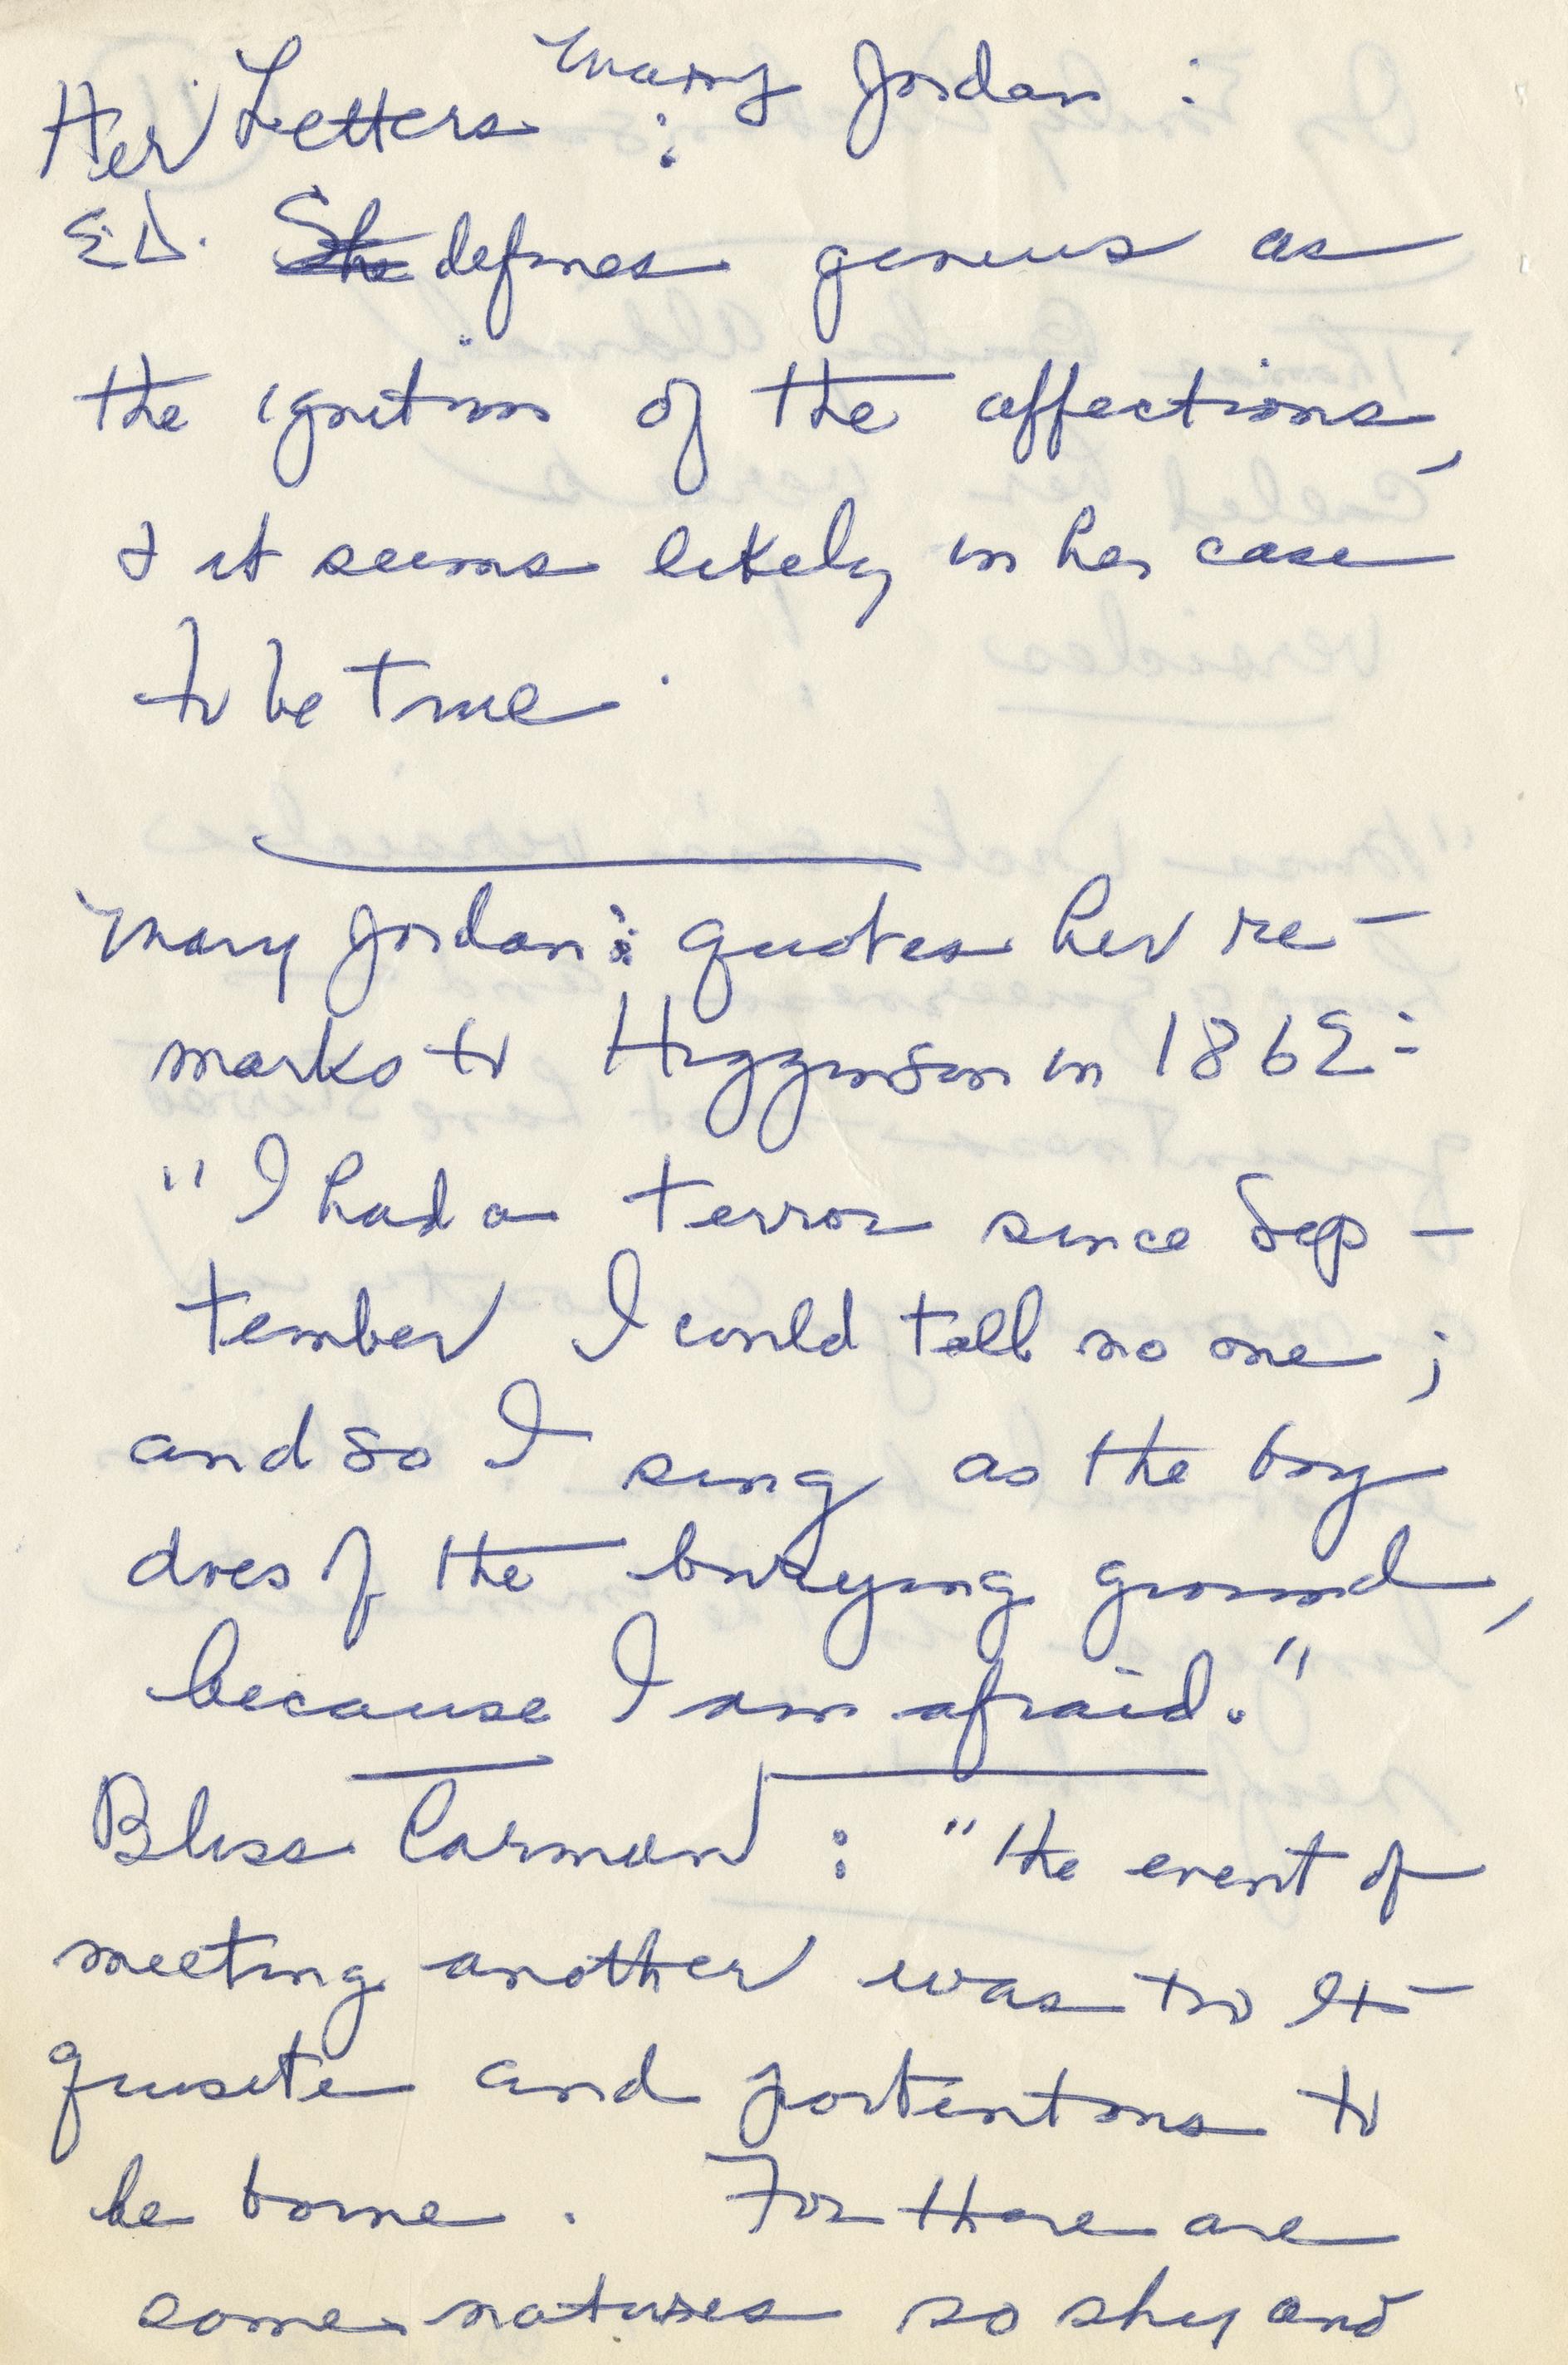 Mary Jordan :
Her Letters :
E.D. She defines genius as
the ignition of the affections,
& it seems likely in her case
to be true.
Mary Jordan : quotes her re-
marks to Higginson in 1862:
"I had a terror since Sep-
tember I could tell no one;
and so I sing as the boy
does of the burying ground,
because I am afraid."
Bliss Carman : "the event of
meeting another was too ex-
quisite and portentous to
be borne. For there are
some natures so shy and